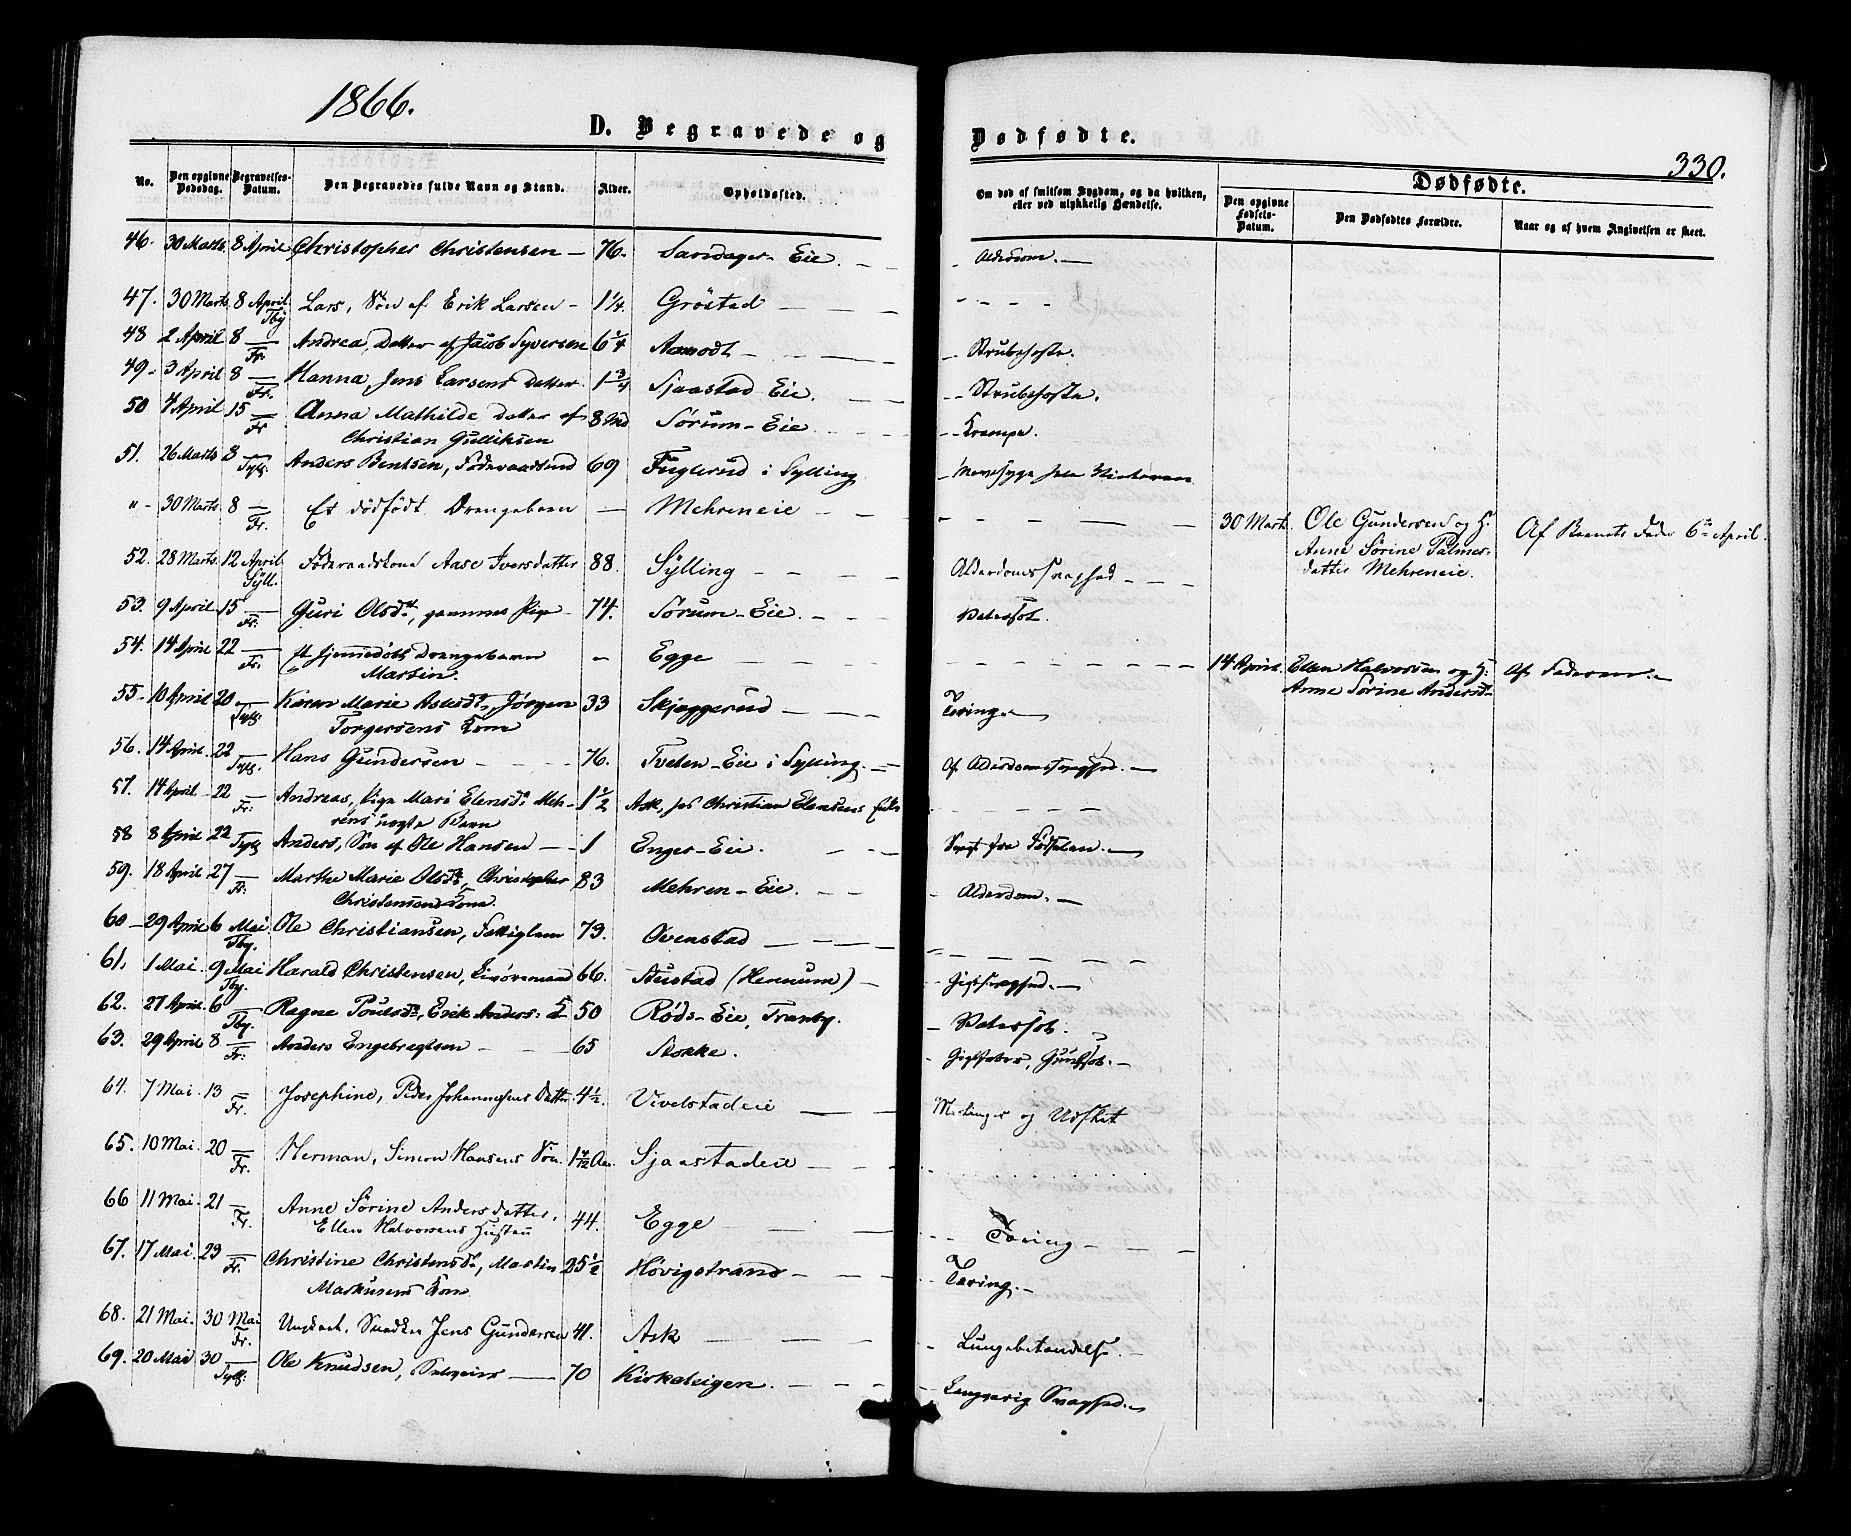 1866.
D. Begravede og
Dødfødte.
330.
No.
Den opgivne Dødsdag.
Begravelses-Datum.
Den Begravedes fulde Navn og Stand.
Alder.
Opholdssted.
Om død af smitsom Sygdom, og da hvilken, eller ved ulykkelig Hændelse.
Dødfødte.
Den opgivne Fødsels-Datum.
Den Dødfødtes Forældre.
Naar og af hvem Angivelsen er skeet.
46. 30 Marts 8 April Christopher Christensen — 76. Sandager-Eie. Alderdom.
47. 30 Marts 8 April Tby Lars, Søn af Erik Larsen - 1 1/4 Gröstad
48 2 April 8 — Fr. Andrea, Datter af Jacob Syversen 6 1/4 Aamodt - Strubehoste.
49- 3 April 8 — Fr. Hanna, Jens Larsens Datter 1 3/4 Sjaastad Eie. Strubehoste.
50 4 April 15 — Fr Anna Mathilde Datter af 8 Md Sørum-Eie Krampe.
Christian Gulliksen
51. 26 Marts 8 — Sylg. Anders Bentsen, Føderaadsmd 69 Fuglerud i Sylling
" - 30 Marts 8 — Fr. Et dödfödt Drengebarn — Mehreneie 30 Mart. Ole Gundersen og H. Af Barnets Fader 6te April.
Anne Sörine Palmes-
datter Mehreneie.
52. 28 Marts 12 April Syll. Föderaadskone Aase Iversdatter 88. Sylling Alderdomssvaghed
53. 9 April 15 — Fr: Guri Olsdt, gammel Pige 74. Sørum-Eie. Vatersot.
54. 14 April 22 — Fr. Et hjemmedøbt Drengebarn - Egge 14 April. Ellen Halvorsen og H. Af Faderen.
Martin. Anne Sørine Andersd
55- 10 April 20 — Sylg. Karen Marie Aslesdt, Jörgen 33 Skjæggerud Tæring.
Torgersens Kone
56. 14 April. 22 — Sylg. Hans Gundersen 76. Tveten-Eie i Sylling. Af Alderdomssvaghed.
57. 14 April 22 — Fr: Andreas, Pige Mari Elensdt Meh- 1 1/2 Ask, hos Christian Elensens
rens uægte Barn
58 8 April 22 Sylg Anders, Søn af Ole Hansen — 1 Enger-Eie. Svagt fra Fødselen.
59. 18 April 27 — Fr. Marthe Marie Olsdt, Christopher 83 Mehren-Eie. Alderdom.
Christensens Kone.
60 — 29 April 6 Mai Tby. Ole Christiansen, Fattiglem 79. Ovenstad
61, 1 Mai. 9 Mai Tby. Harald Christensen, 66. Stustad (Hennum) Gigtsvaghed.
62. 27 April 6 — Tby. Ragne Poulsdt, Erik Anders: K 50 Røds-Eie, Tranby. Vatersot.
63. 29 April 8 — Fr. Anders Engebregtsen 65 Stokke. Gigtfeber, Gulsot.
64. 7 Mai. 13 — Fr. Josephine, Peder Johannesens Datter 4 1/2. Vivelstadeie Meslinger og Udslæt
65. 10 Mai. 20 — Fr. Herman, Simon Hansens Søn. 1 4/12 Aar. Sjaastadeie
66 11 Mai. 21 — Fr. Anne Sörine Andersdatter, 44. Egge Tæring
Ellen Halvorsens Hustru
67. 17 Mai. 23 — Fr. Christine Christensdt, Martin 25 1/2 Høvigstrand Tæring.
Markusens Kone.
68. 21 Mai. 30 Mai Fr. Ungkarl, Snedker Jens Gundersen 41. Ask Lungebetændelse.
69. 20 Mai 30 — Sylg. Ole Knudsen, Selveier — 70 Kirkeleigen. Langvarig Svaghed.